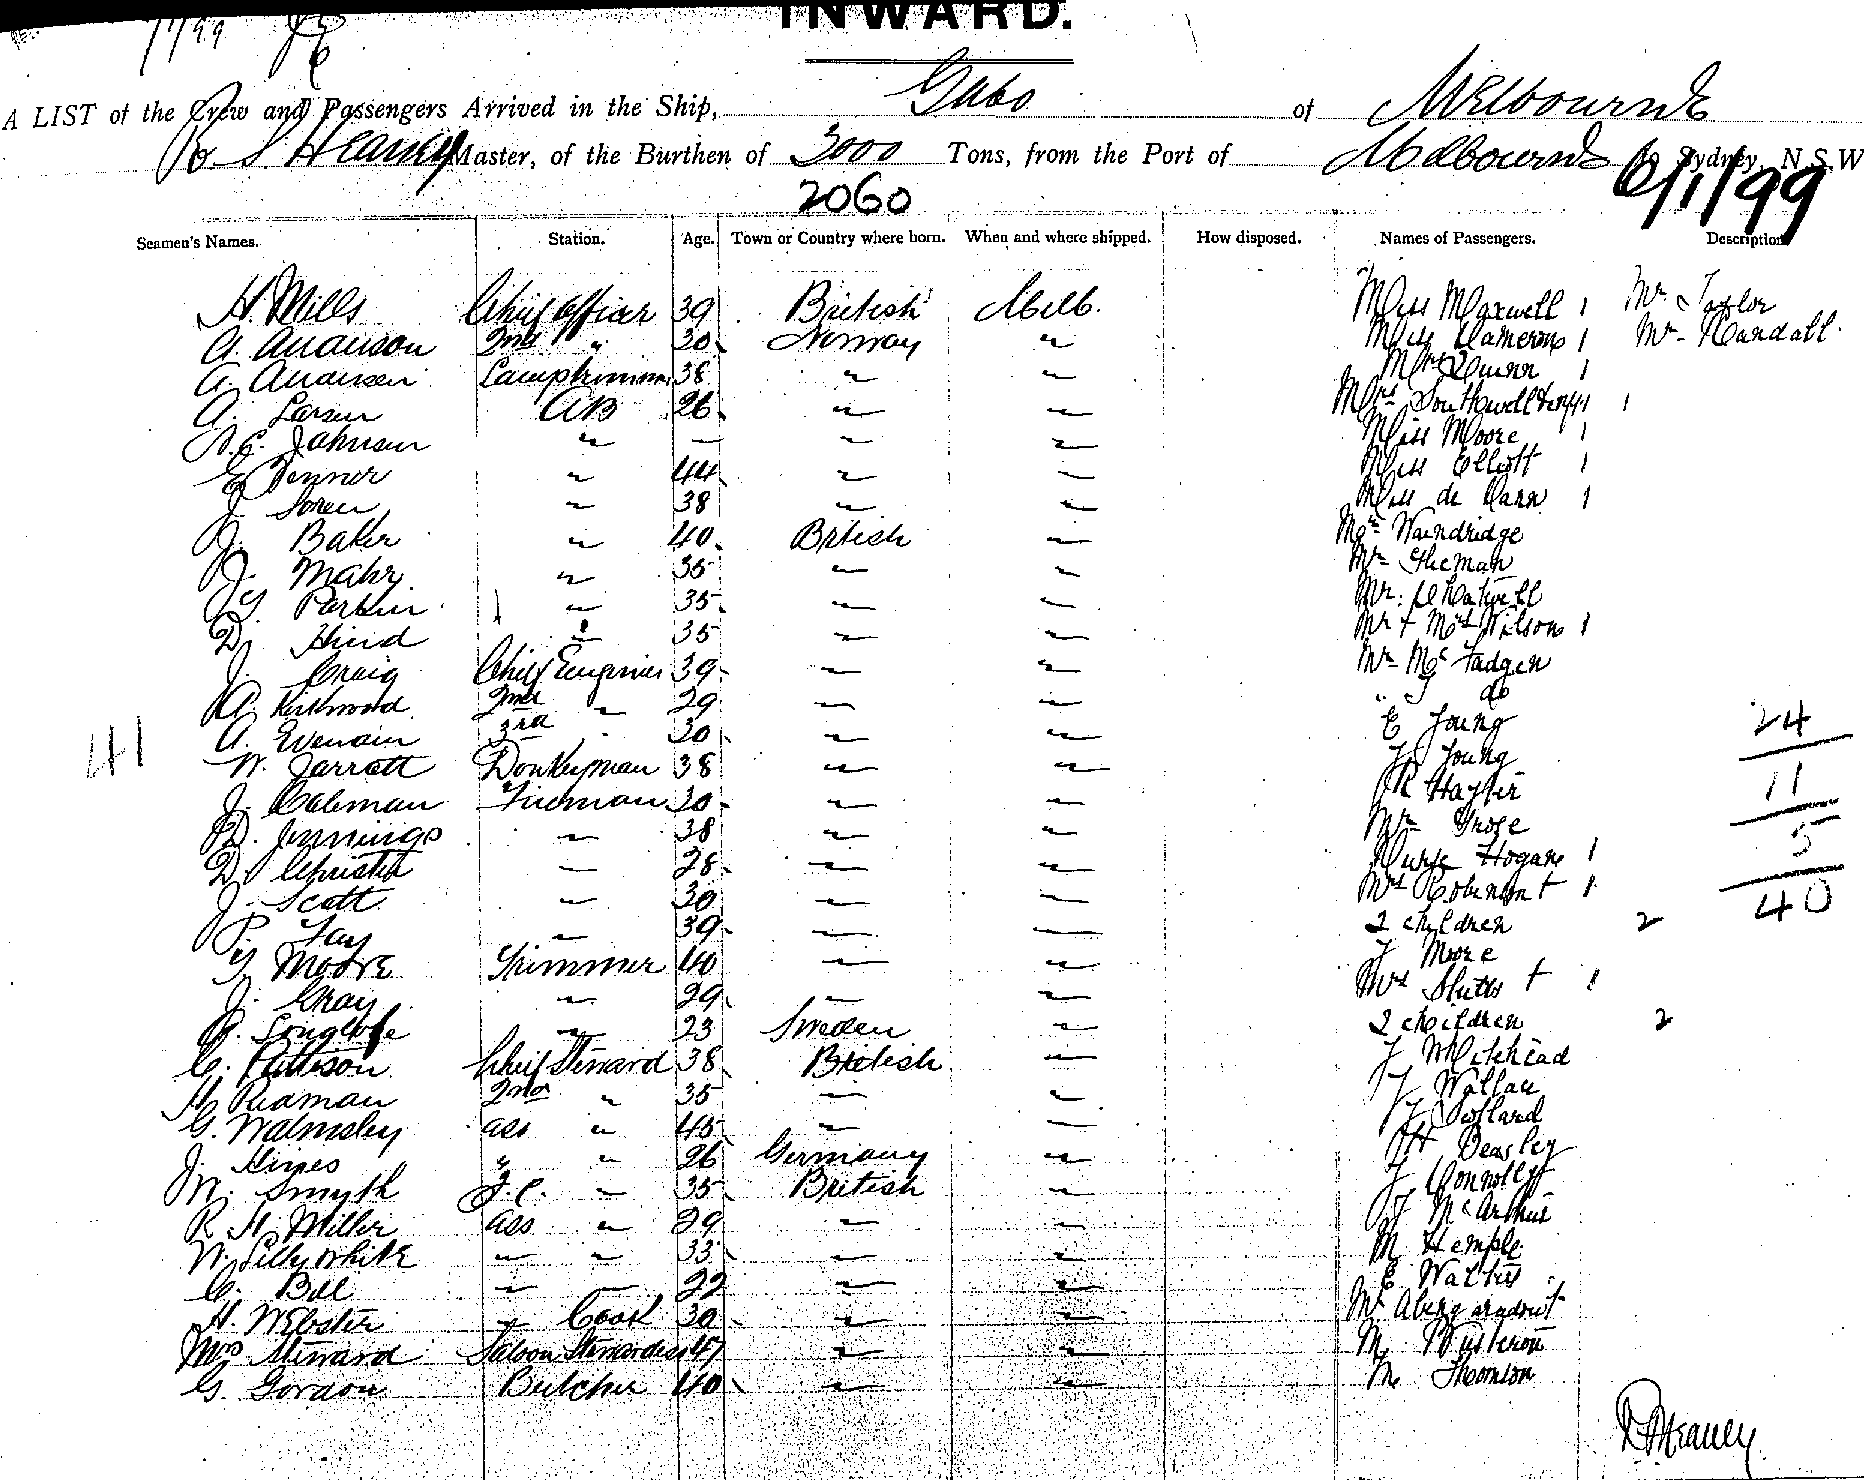 INWARD.
A LIST of the Crew and Passengers Arrived in the Ship, Gabo of Melbourne
Master, of the Burthen of 3000 Tons, from the Port of Melbourne to Sydney, N S W
2060 6/1/99
Seamen's Names. Station. Age. Town or Country where born. When and where shipped. How disposed. Names of Passengers. Description
H. Mills Chief Officer 39 British Melb. Miss Maxwell 1 Mr Taylor
A. Anderson 2nd " 30 Norway " Miss Cameron 1 Mr Randall
A. Andersen Lamptrimmer 38 " " Mrs Quinn 1
A. Larsen AB 26 " " Mrs Southwell 1
Johnsen " — " " Miss Moore 1
E " 44 " " Miss Elliott 1
J. Soren " 38 " " Miss de 1
J. Baker " 40 British " Waindridge
J. " 35 " " Mr
Parkin " 35 " " Mr.
D. Hind " 35 " " Mr + Mrs Wilson 1
J. Craig Chief Engineer 39 " " Mr Mc Fadgen
A. Kirkwood 2nd " 29 " " " J do
A. 3rd " 30 " " E Young
W. Jarratt Donkeyman 38 " " J Young
J. Coleman Fireman 30 " " R Hayter
D. Jennings " 38 " " Mr Grose
D. Christie " 28 " " Nurse Hogan 1
J. Scott " 30 " " Mrs Robinson + 1
P. Fay " 39 " " 2 children 2
T. Moore Trimmer 40 " " J Moore
J. Gray " 29 " " Mrs + 1
" 23 Sweden " 2 children 2
C. Pattison Chief Steward 38 British " J Whitehead
H. Redman 2nd " 35 " " J Wallace
G. Walmsley ass " 45 " " J
J. Himes " " 26 Germany " H Beasley
M. Smyth F.C. " 35 British " J Connolly
R. H. Miller ass " 29 " " J McArthur
W. Lillywhite " " 33 " " M Hemple
C. Bell " " 22 " " E
H. Webster " Cook 30 " " Mr
Mrs Steward Saloon Stewardess 47 " " M
G. Gordon Butcher 40 " " M Thomson
41
24
11
5
40